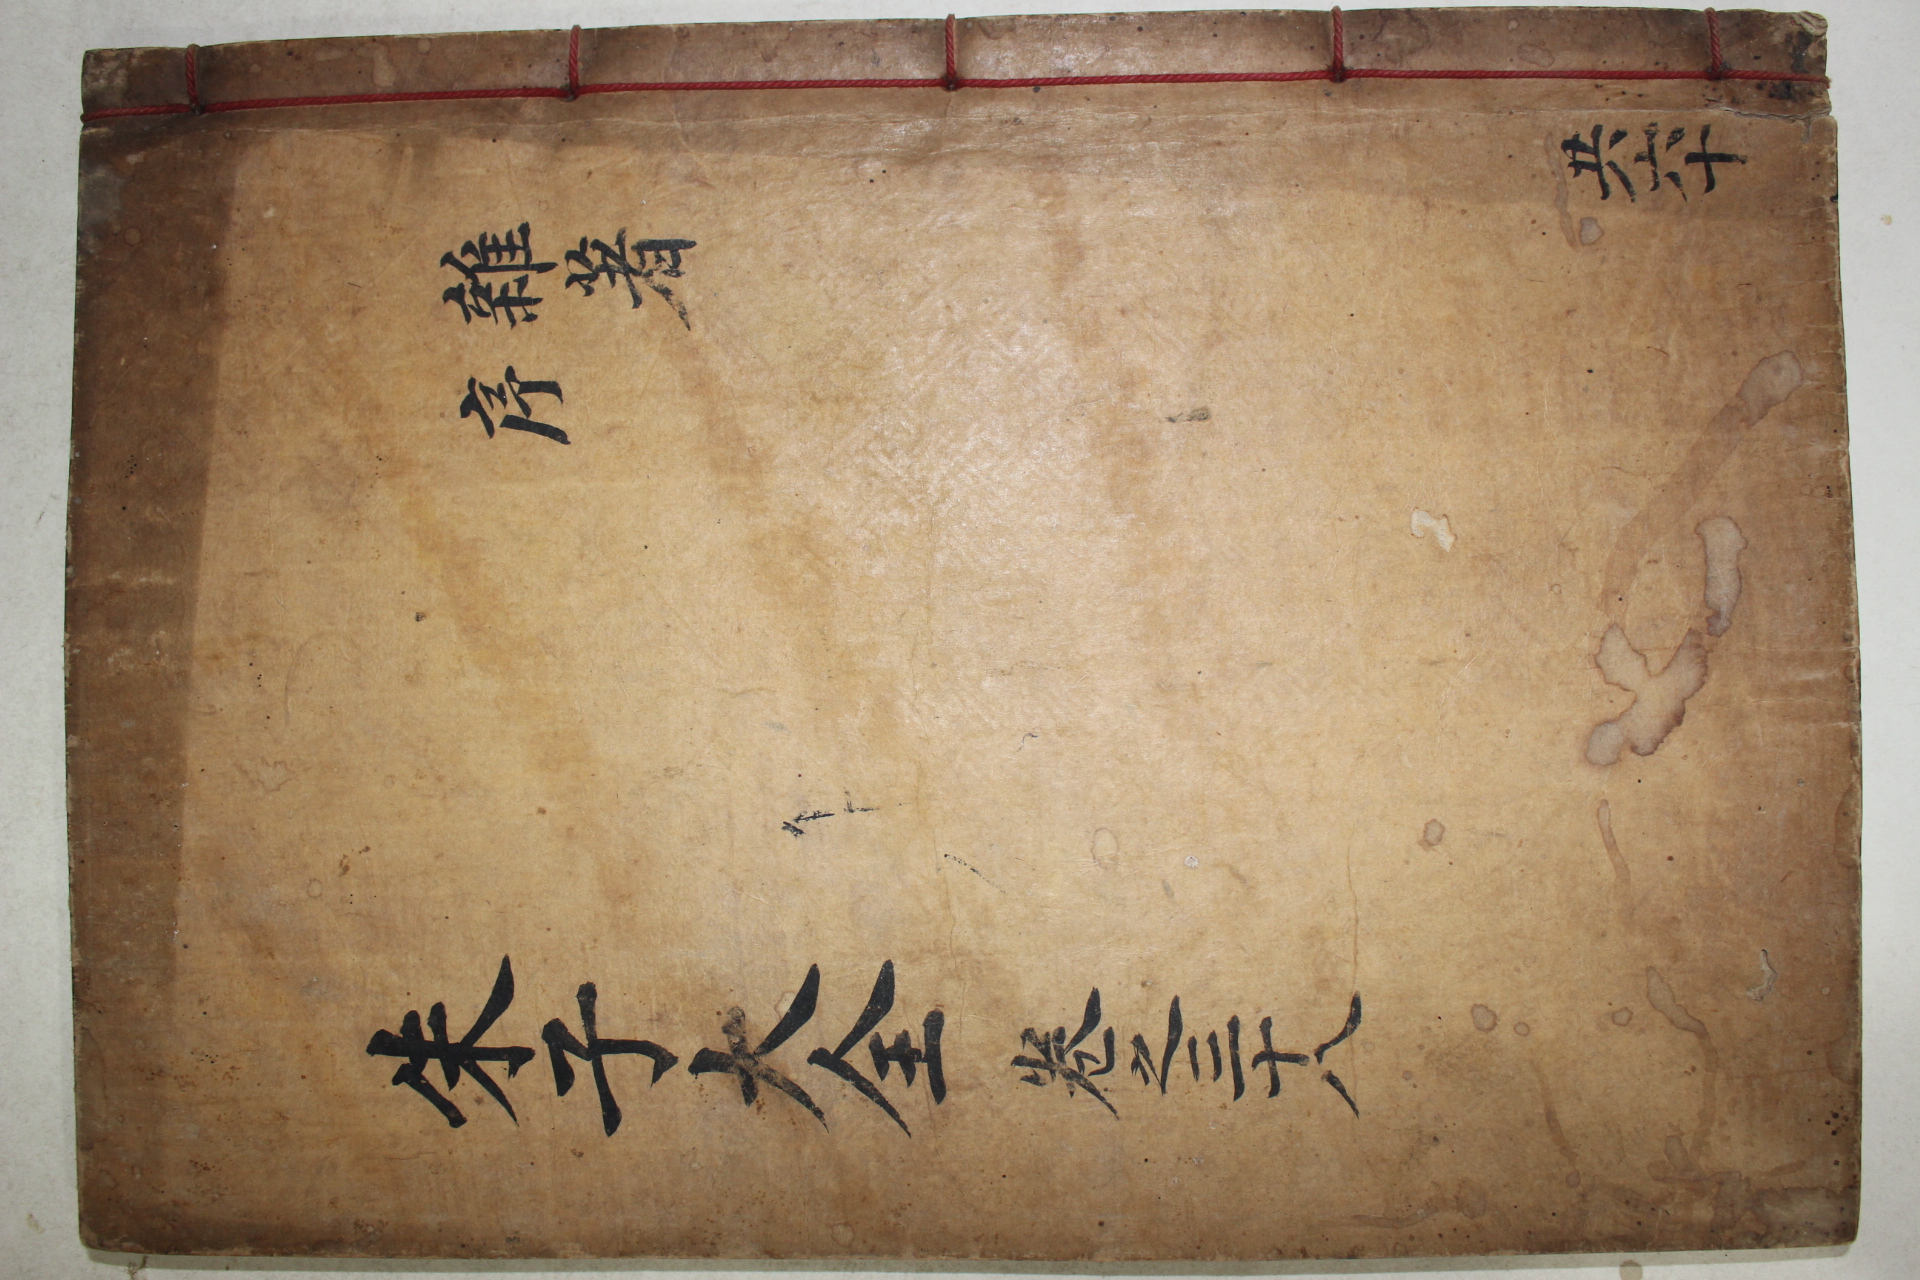 朱子大全 卷之三十八
雜著
序
共六十